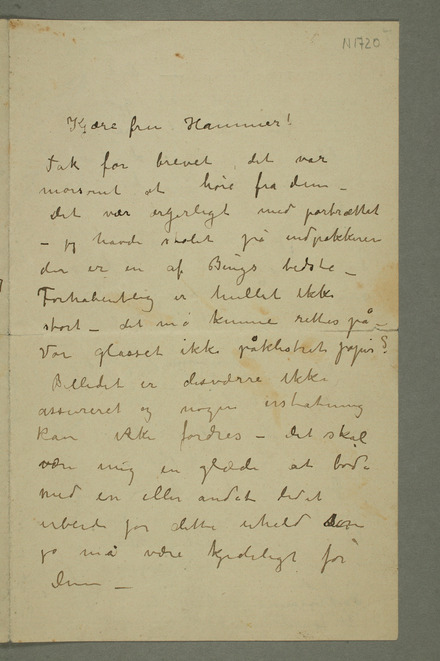 N 1720
Kjære fru Hammer!
Tak for brevet, det var
morsomt at höre fra dem –
Det var ergerligt med portrættet
– jeg havde stolet på indpakkeren
der er en af Bings bedste –
Forhåbentlig er hullet ikke
stort – det må kunne rettes på –
Var glasset ikke påklistret papir?
Billedet er desværre ikke
assureret og nogen erstatning
kan ikke fordres – det skal
være mig en glæde at bøde
med en eller andet lidet
arbeide for dette uheld den
jo må være kjedeligt for
Dem –